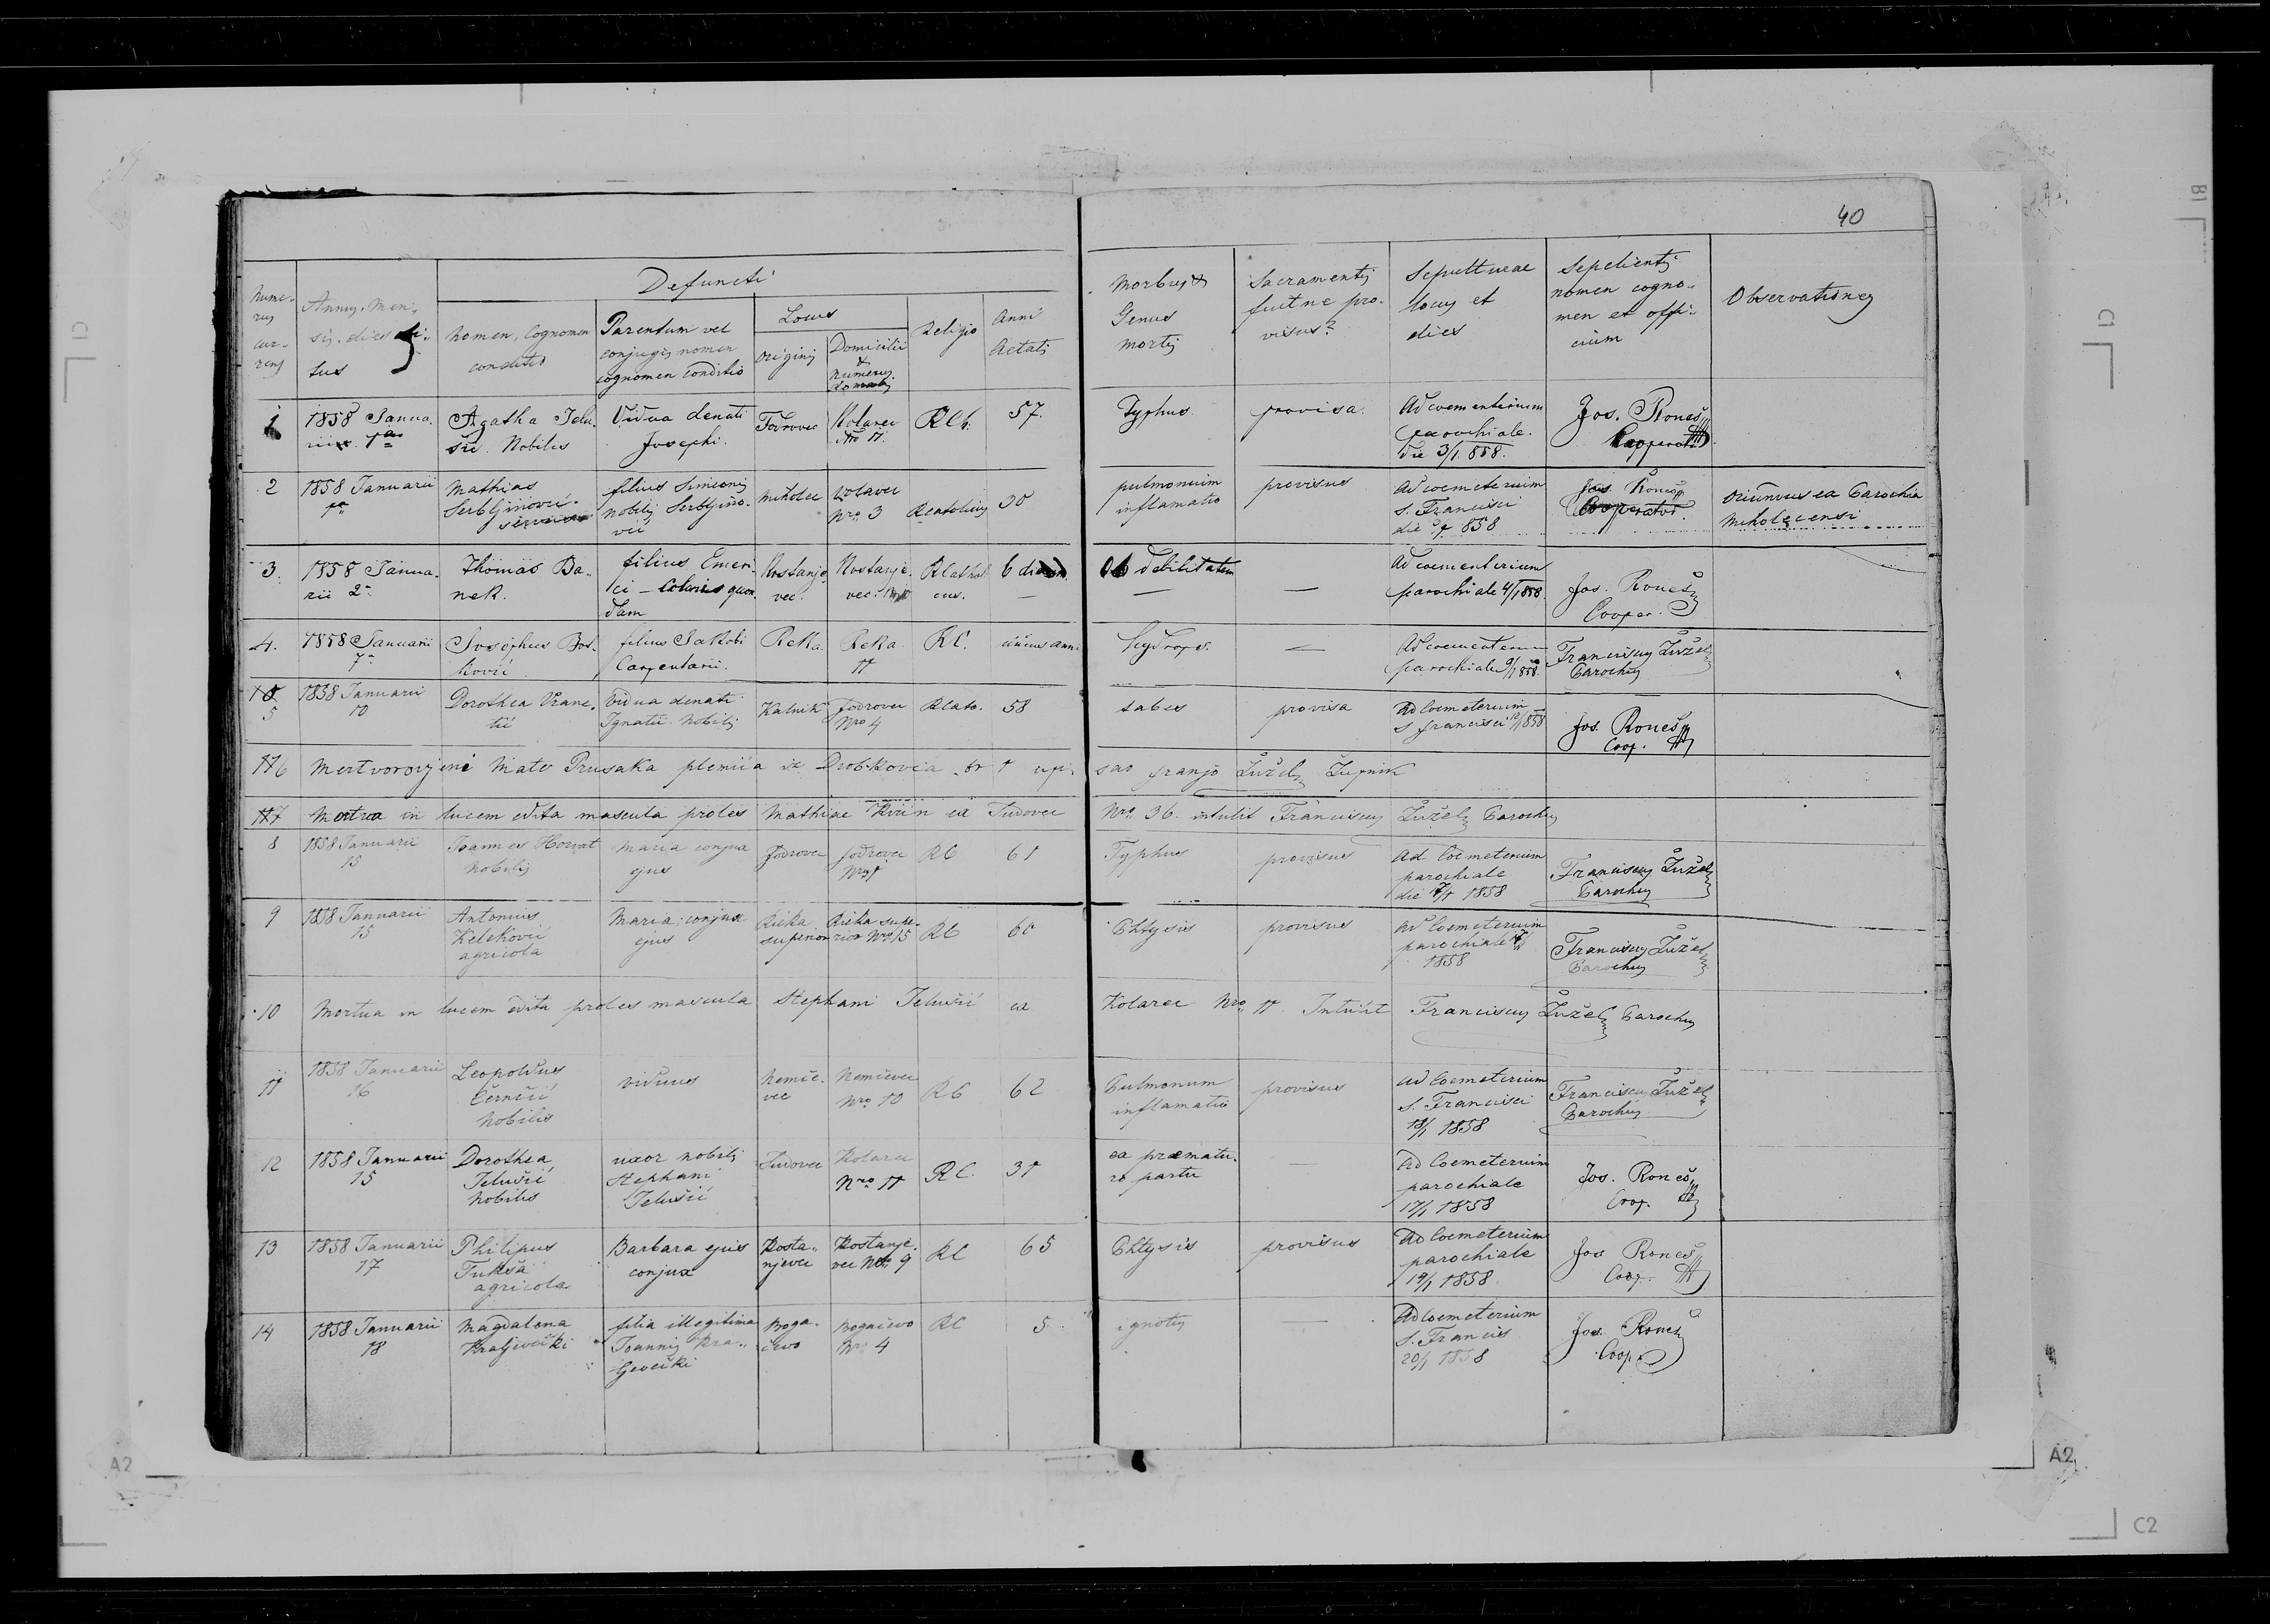 40
Defuncti
Numerus currens
Annus, Mensis, dies obitus
Nomen, Cognomen conditio
Parentum vel conjugis nomen cognomen conditio
Locus
originis
Domicilii & numerus domus
Religio
Anni Aetatis
Morbus & Genus mortis
Sacramentis fuitne provisus?
Sepulturae locus et dies
Sepelientis nomen cognomen et officium
Observationes
1 1858 Januarii 1a Agatha Jelušić Nobilis Vidua denati Josephi Fodrovec Kolarec Nro 11. RCth. 57. Typhus provisa. Ad coementerium parochiale. die 3/1 858. Jos. Roneš Cooperator
2 1858 Januarii 1a Mathias Serbljinović filius Simeonis nobilis Serbljinović Miholec Kolarec Nro 3 RCatolicus 30 pulmonium inflamatio provisus Ad coemeterium S. Francisci die 858 Jos. Roneš Cooperator. Oriundus ex Parochia Miholecensi
3. 1858 Januarii 2a Thomas Banek. filius Emerici colonis quondam Kostanjevec. Kostanjevec. RCatholicus. 6 dierum Ob debilitatem — — Ad coementerium parochiale 4/1 858. Jos. Roneš Cooper.
4. 1858 Januarii 7a Josephus Bosković filius Jakobi Carpentarii. Reka Reka 11 RC. unius anni Hydrops. — Ad coementerium parochiale 9/1 858. Franciscus Žužel Parochus
5 1858 Januarii 10 Dorothea Vranetić Vidua denati Ignatii Nobilis Kalnik Fodrovec Nro 4 RCato. 58 tabes provisa Ad Coemeterium S Francisci 12/1 858 Jos. Roneš Coop.
6 Mertvorovjeni Mato Prusaka plemića iz Drobkovca br 1 upisao Franjo Žužel Župnik
7 Mortua in lucem edita mascula proles Mathiae Kvrin ex Ludovec Nro 36. intulit Franciscus Žužel Parochus
8 1858 Januarii 15 Joannes Horvat Nobilis Maria conjux ejus Fodrovec Fodrovec Nro 1 RC 61 Typhus provisus Ad Coemeterium parochiale die 17/1 1858 Franciscus Žužel Parochus
9 1858 Januarii 15 Antonius Keleković agricola Maria conjux ejus Rieka superior Rieka superior Nro 15 RC 60 Phtysis provisus Ad Coemeterium parochiale 17/1 1858 Franciscus Žužel Parochus
10 Mortua in lucem edita proles mascula Stephani Jelušić ex Kolarec Nro 11 Intulit Franciscus Žužel Parochus
11 1858 Januarii 16 Leopoldus Černčić Nobilis viduus Nemčevec Nemčevec Nro 10 RC 62 Pulmonum inflamatio provisus Ad Coemeterium S. Francisci 18/1 1858 Franciscus Žužel Parochus
12 1858 Januarii 15 Dorothea Jelušić Nobilis uxor nobilis Stephani Jelušić Ludovec Kolarec Nro 11 RC. 31 ex praematuro partu — Ad Coemeterium parochiale 17/1 1858 Jos. Roneš Coop.
13 1858 Januarii 17 Philipus Tukša agricola Barbara ejus conjux Kostanjevec Kostanjevec Nro 9 RC 65 Phtysis provisus Ad Coemeterium parochiale 19/1 1858 Jos Roneš Coop.
14 1858 Januarii 18 Magdalena Kraljevečki filia illegitima Joannis Kraljevečki Bogačevo Bogačevo Nro 4 RC 5 ignotus — Ad Coemeterium S. Francis 20/1 1858 Jos. Roneš Coop.
A2
A2
C2
C1
C1
B1